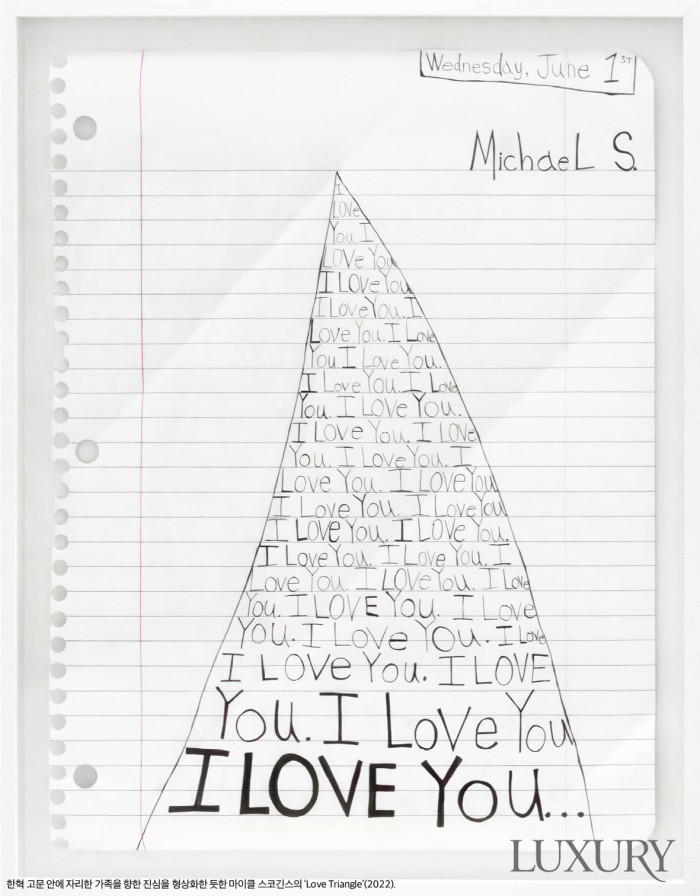 Wednesday, June 1ST
MichaeL S.
I
LOVe
You I
LOVe You
I LOVe You
I LOVe You. I
Love You. I Love
You I Love You.
I Love You. I Love
You. I LOVe You.
I LOVe You. I LOVe
You. I LOVe You. I
LOVe You. I LOVe You
I LOVe You. I LoveYou
I LOVe You. I LOVe You.
I LoveYou. I LOVe You. I
LOVe You. I LOVe You. I LOVe
You. I LOVE You. I LOVe
You. I LOVe You. I LOVe
I LOVe You. I LOVE
You. I LOVe You
I LOVE You...
LUXURY
한혁 고문 안에 자리한 가족을 향한 진심을 형상화한 듯한 마이클 스코긴스의 'Love Triangle'(2022).